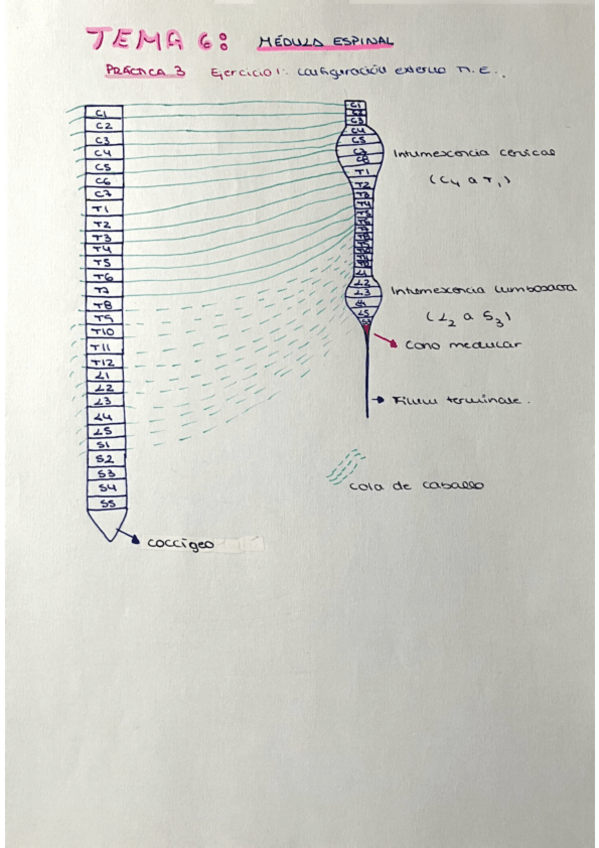 TEMA 6: MÉDULA ESPINAL
PRÁCTICA 3 Ejercicio 1: configuración externa m.e..
C1
C2
C3
C4
C5
C6
C7
T1
T2
T3
T4
T5
T6
T7
T8
T9
T10
T11
T12
L1
L2
L3
L4
L5
S1
S2
S3
S4
S5
coccígeo
C1
C2
C3
C4
C5
C8
T1
T2
T3
T4
L1
L2
L3
L4
L5
Intumescencia cervical
(C4 a T1)
Intumescencia lumbosacra
(L2 a S3)
Cono medular
Filum terminale.
cola de caballo